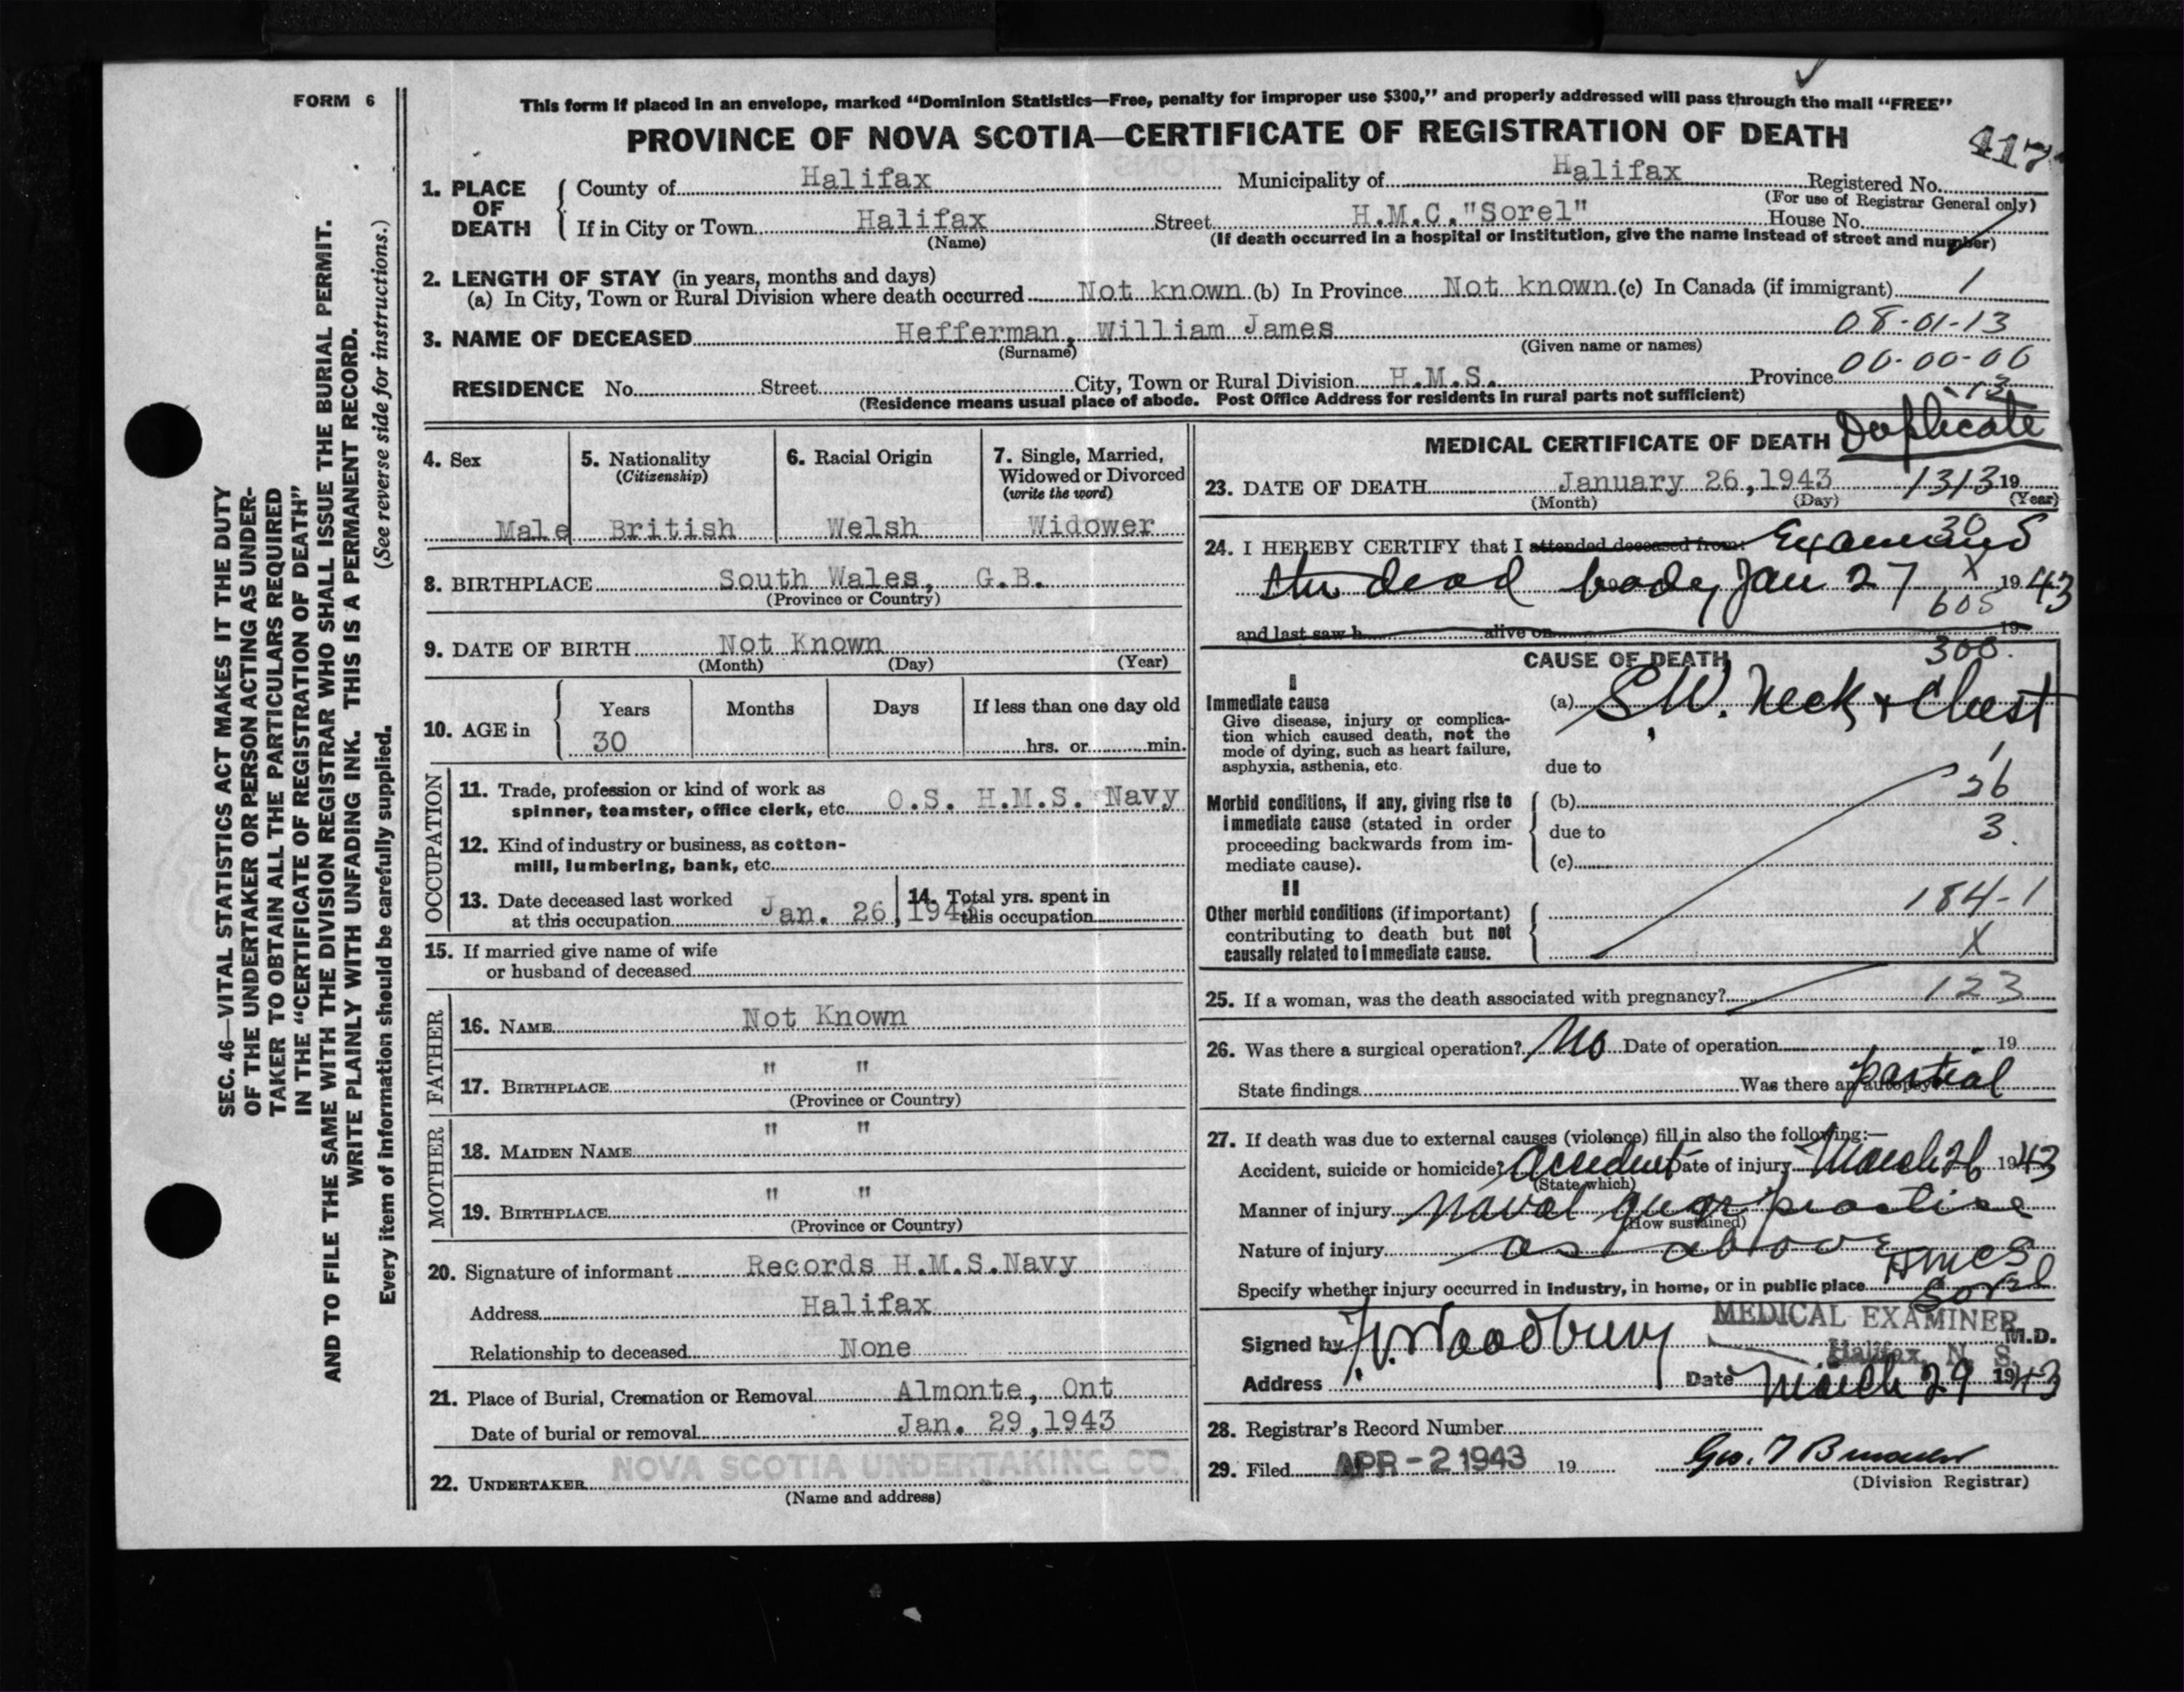 FORM 6
This form if placed in an envelope, marked “Dominion Statistics—Free, penalty for improper use $300,” and properly addressed will pass through the mail “FREE”
PROVINCE OF NOVA SCOTIA—CERTIFICATE OF REGISTRATION OF DEATH
417
1. PLACE OF DEATH
County of Halifax Municipality of Halifax Registered No.
(For use of Registrar General only)
If in City or Town Halifax Street H.M.C."Sorel" House No.
(Name) (If death occurred in a hospital or institution, give the name instead of street and number)
2. LENGTH OF STAY (in years, months and days)
(a) In City, Town or Rural Division where death occurred Not known (b) In Province Not known (c) In Canada (if immigrant) 1
3. NAME OF DECEASED Hefferman, William James 08-01-13
(Surname) (Given name or names)
00-00-06
RESIDENCE No. Street City, Town or Rural Division H.M.S. Province
13
(Residence means usual place of abode. Post Office Address for residents in rural parts not sufficient)
4. Sex
Male
5. Nationality
(Citizenship)
British
6. Racial Origin
Welsh
7. Single, Married,
Widowed or Divorced
(write the word)
Widower
8. BIRTHPLACE South Wales, G.B.
(Province or Country)
9. DATE OF BIRTH Not Known
(Month) (Day) (Year)
10. AGE in
Years Months Days If less than one day old
30 hrs. or min.
OCCUPATION
11. Trade, profession or kind of work as
spinner, teamster, office clerk, etc. O.S. H.M.S. Navy
12. Kind of industry or business, as cotton-
mill, lumbering, bank, etc.
13. Date deceased last worked
at this occupation Jan. 26, 1943
14. Total yrs. spent in
this occupation
15. If married give name of wife
or husband of deceased
FATHER
16. NAME Not Known
17. BIRTHPLACE " "
(Province or Country)
MOTHER
18. MAIDEN NAME " "
19. BIRTHPLACE " "
(Province or Country)
20. Signature of informant Records H.M.S.Navy
Address Halifax
Relationship to deceased None
21. Place of Burial, Cremation or Removal Almonte, Ont
Date of burial or removal Jan. 29,1943
22. UNDERTAKER NOVA SCOTIA UNDERTAKING CO.
(Name and address)
MEDICAL CERTIFICATE OF DEATH Duplicate
23. DATE OF DEATH January 26,1943 1313 19
(Month) (Day) (Year)
30
24. I HEREBY CERTIFY that I attended deceased from: Examined
the dead body Jan 27 X 19 43
605
and last saw h alive on 19
CAUSE OF DEATH 300.
I
Immediate cause
Give disease, injury or complica-
tion which caused death, not the
mode of dying, such as heart failure,
asphyxia, asthenia, etc.
(a) S.W. Neck + Chest
due to
Morbid conditions, if any, giving rise to
immediate cause (stated in order
proceeding backwards from im-
mediate cause).
(b) 26
due to 3.
(c)
II
Other morbid conditions (if important)
contributing to death but not
causally related to immediate cause.
184-1
X
25. If a woman, was the death associated with pregnancy? 123
26. Was there a surgical operation? No Date of operation 19
State findings Was there an autopsy partial
27. If death was due to external causes (violence) fill in also the following:—
Accident, suicide or homicide? Accident Date of injury March 26 1943
(State which)
Manner of injury Naval gun practise
(How sustained)
Nature of injury as above
Specify whether injury occurred in industry, in home, or in public place HMCS Sorel
Signed by Woodbury MEDICAL EXAMINER M.D.
Halifax, N. S.
Address Date March 29 1943
28. Registrar's Record Number
29. Filed APR -2 1943 19
(Division Registrar)
SEC. 46—VITAL STATISTICS ACT MAKES IT THE DUTY
OF THE UNDERTAKER OR PERSON ACTING AS UNDER-
TAKER TO OBTAIN ALL THE PARTICULARS REQUIRED
IN THE “CERTIFICATE OF REGISTRATION OF DEATH”
AND TO FILE THE SAME WITH THE DIVISION REGISTRAR WHO SHALL ISSUE THE BURIAL PERMIT.
WRITE PLAINLY WITH UNFADING INK. THIS IS A PERMANENT RECORD.
Every item of information should be carefully supplied. (See reverse side for instructions.)